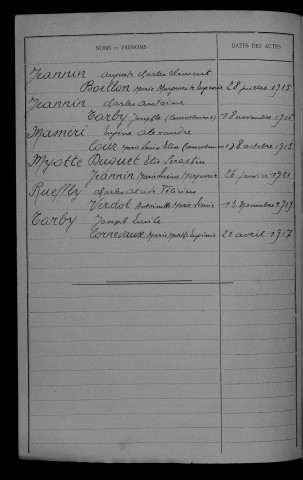 NOMS ET PRÉNOMS DATES DES ACTES
Jeannin Auguste Charles Clément
Boillon Marie Marguerite Eugénie 28 juillet 1915
Jeannin Charles Antoine
Tarby Josèphe 18 novembre 1916
Mamèri Eugène Alexandre
Cour Marie Louise Elisa 18 octobre 1915
Myotte Duquet Elie Séraphin
Jeannin Marie Louise Marguerite 26 janvier 1921
Rueffly Charles Alcide Félicien
Verdot Antoinette Marie Louise 15 novembre 1919
Tarby Joseph Emile
Cornevaux Marie Marthe Eugénie 21 avril 1917